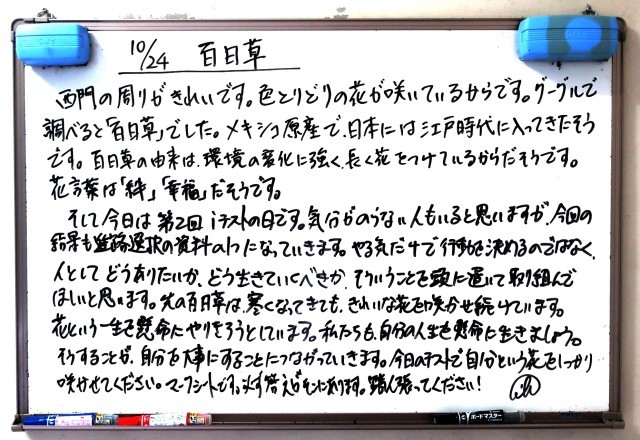 10/24 百日草
西門の周りがきれいです。色とりどりの花が咲いているからです。グーグルで
調べると「百日草」でした。メキシコ原産で、日本には江戸時代に入ってきたそう
です。百日草の由来は、環境の変化に強く、長く花をつけているからだそうです。
花言葉は「絆」「幸福」だそうです。
そして今日は第2回iテストの日です。気分がのらない人もいると思いますが、今回の
結果も進路選択の資料の1つになっていきます。やる気だけで行動を決めるのではなく、
人としてどうありたいか、どう生きていくべきか、そういうことを頭に置いて取り組んで
ほしいと思います。先の百日草は、寒くなってきても、きれいな花を咲かせ続けています。
花という一生を懸命にやりきろうとしています。私たちも、自分の人生も懸命に生きましょう。
そうすることが、自分を大事にすることにつながっていきます。今日のテストで自分という花をしっかり
咲かせてください。マークシートです。必ず答えがそこにあります。踏ん張ってください！
ボードマスター